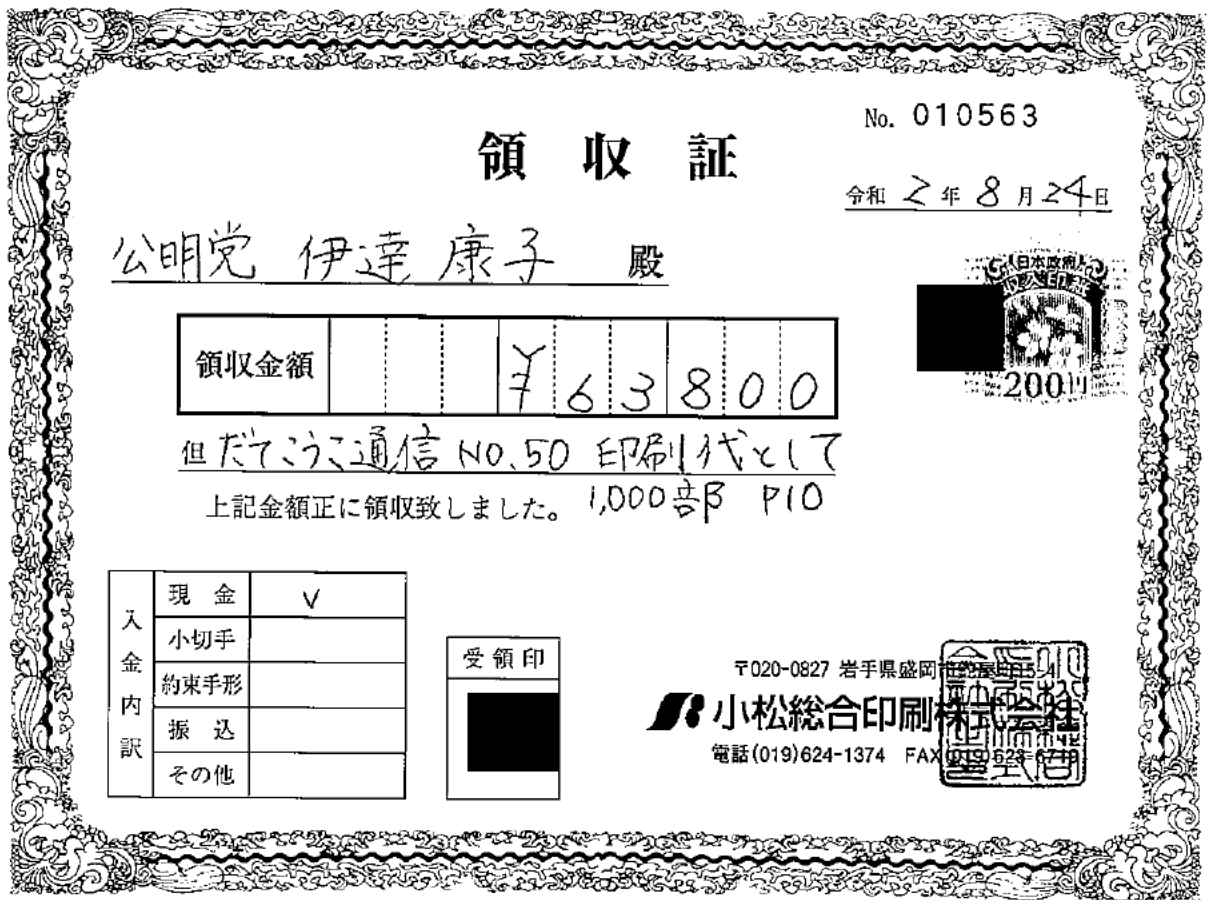 No. 010563
領収証
令和 2 年 8 月 24 日
公明党 伊達 康子 殿
日本政府
収入印紙
200円
領収金額 ¥63800
但 だてこうこ通信 NO.50 印刷代として
上記金額正に領収致しました。 1,000部 P10
入金内訳
現金 V
小切手
約束手形
振込
その他
受領印
〒020-0827 岩手県盛岡市
小松総合印刷株式会社
電話(019)624-1374 FAX(019)623-6719